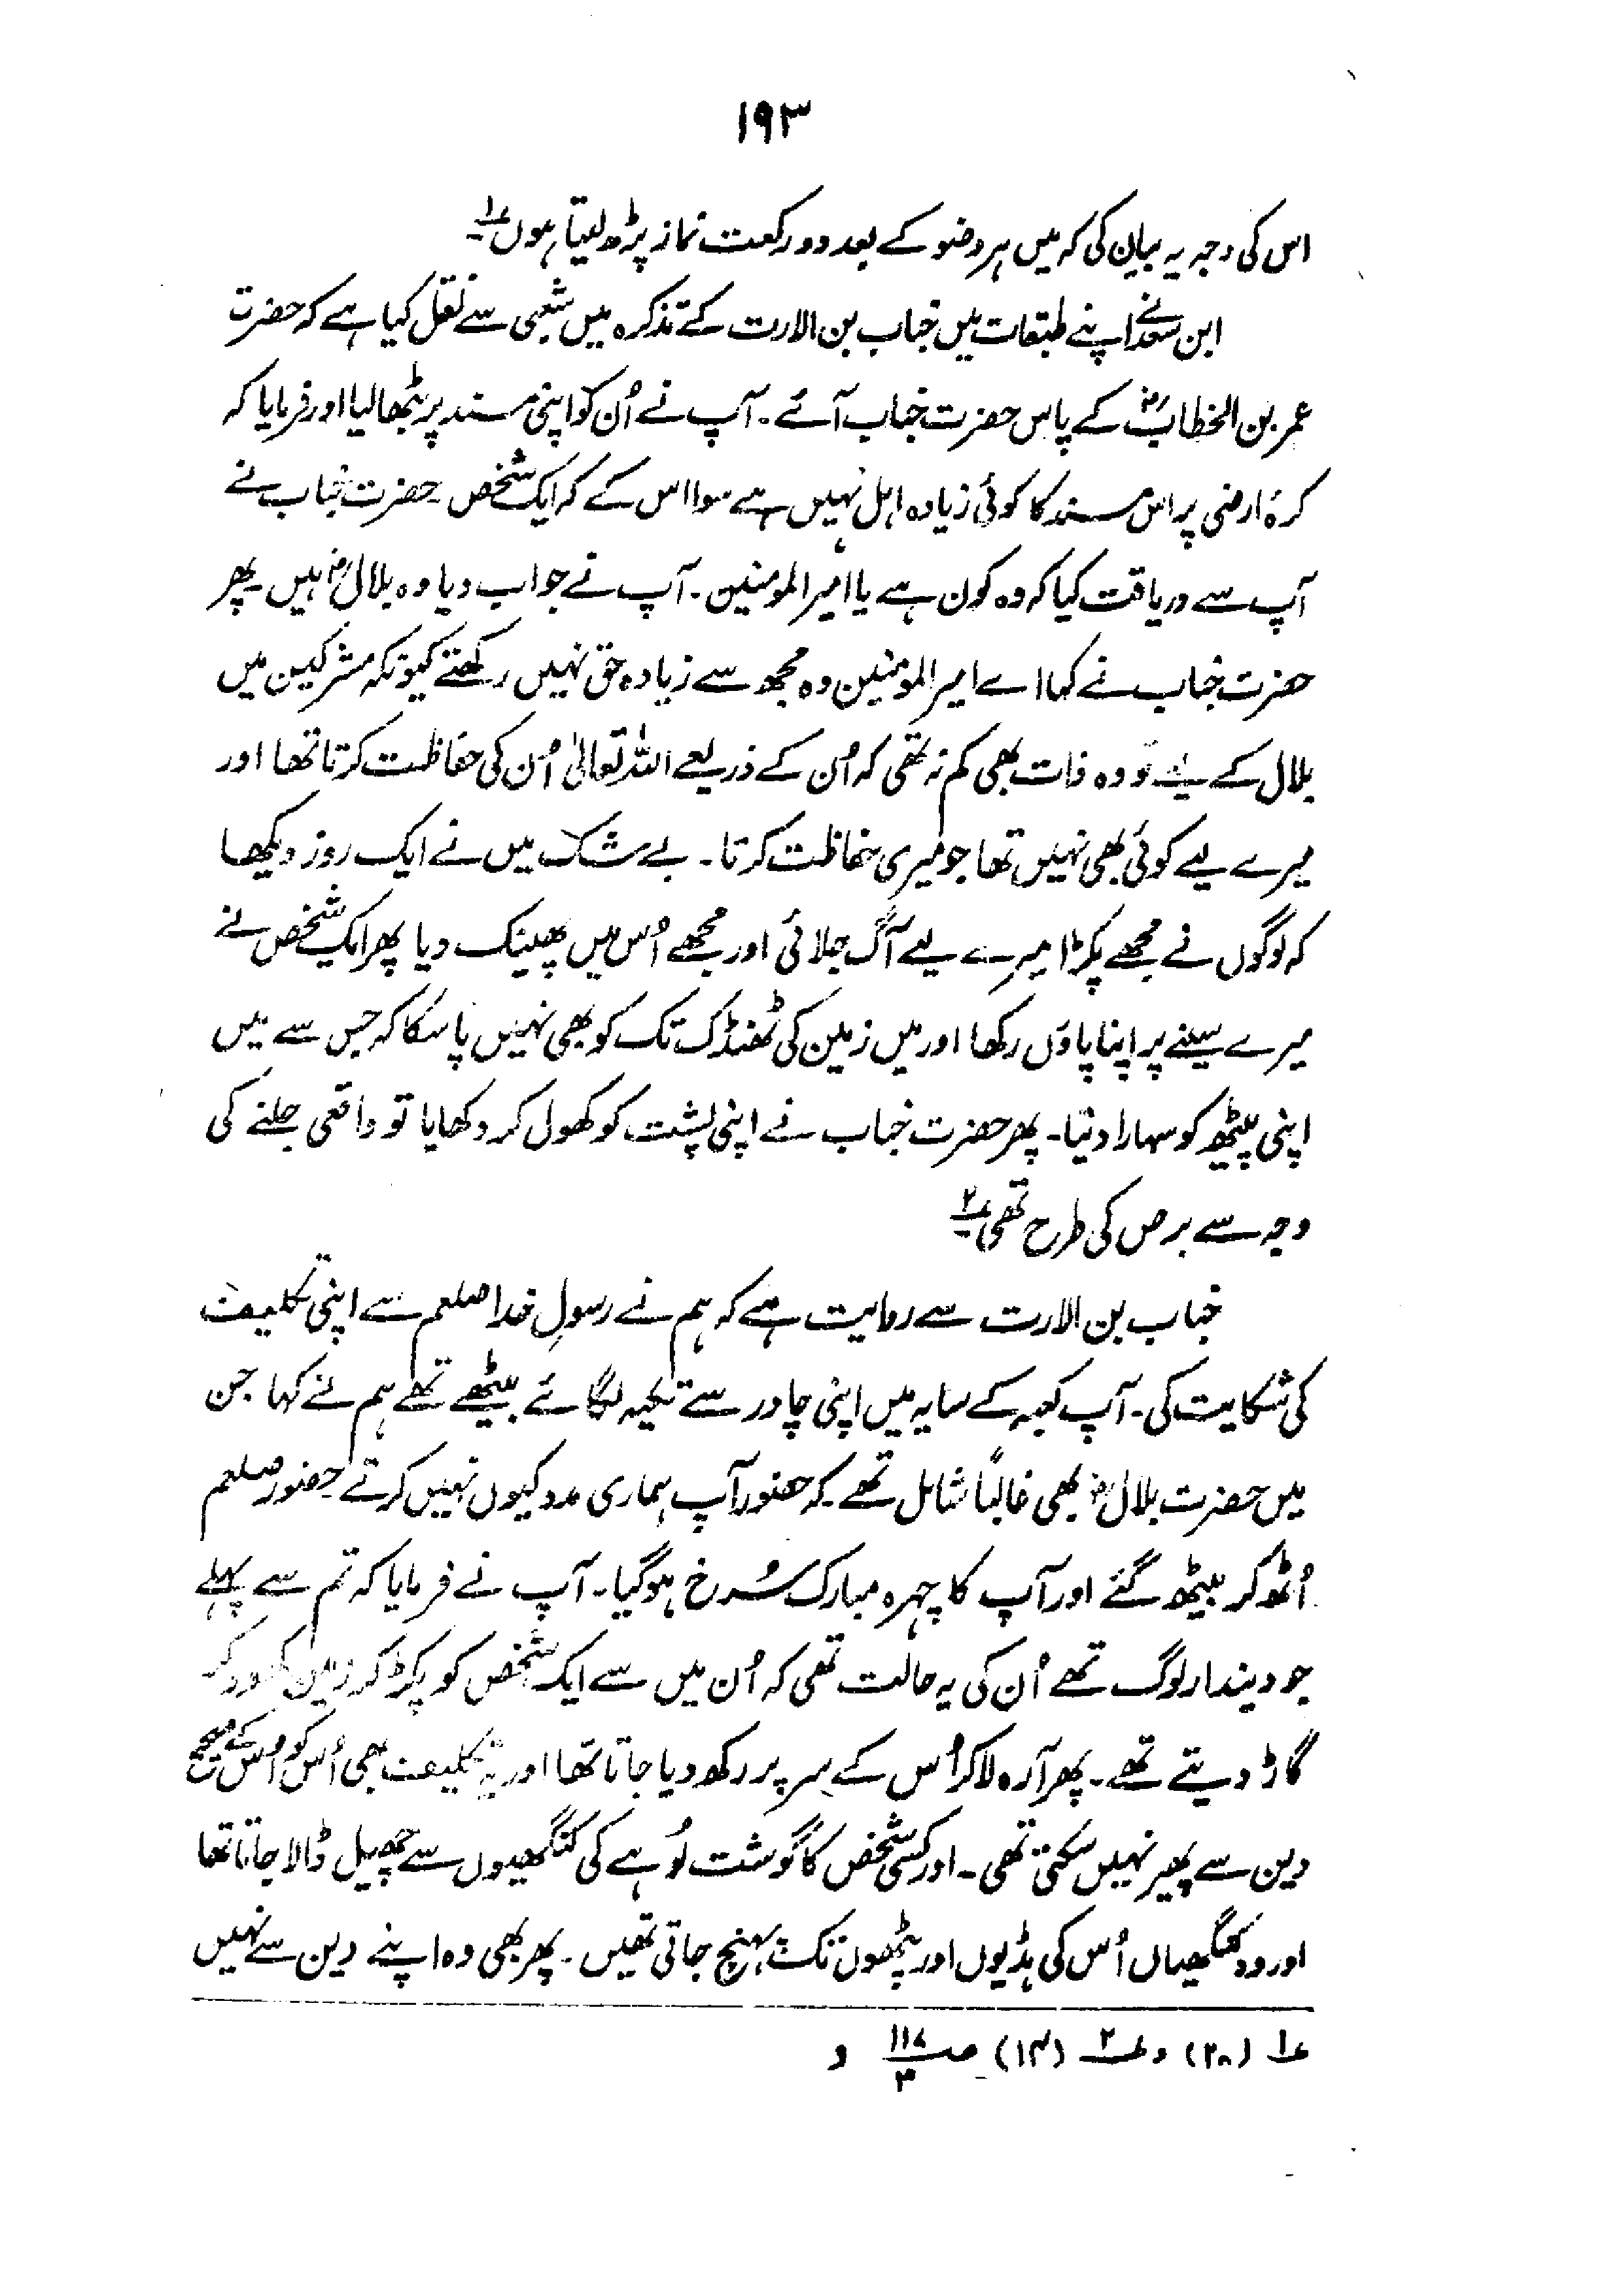 ۱۹۳
اس کی وجہ یہ بیان کی کہ میں ہر وضو کے بعد دو رکعت نماز پڑھ لیتا ہوں ؏۱
ابن سعد نے اپنے طبقات میں خباب بن الارت کے تذکرہ میں شعبی سے نقل کیا ہے کہ حضرت
عمر بن الخطابؓ کے پاس حضرت خباب آئے۔ آپ نے اُن کو اپنی مسند پر بٹھا لیا اور فرمایا کہ
کرۂ ارضی پر اس مسند کا کوئی زیادہ اہل نہیں ہے سوا اس کے کہ ایک شخص۔ حضرت خباب نے
آپ سے دریافت کیا کہ وہ کون ہے یا امیر المومنین۔ آپ نے جواب دیا وہ بلالؓ ہیں۔ پھر
حضرت خباب نے کہا اے امیر المومنین وہ مجھ سے زیادہ حق نہیں رکھتے کیونکہ مشرکین میں
بلال کے لیے تو وہ ذات بھی کم نہ تھی کہ اُن کے ذریعے اللہ تعالیٰ اُن کی حفاظت کرتا تھا اور
میرے لیے کوئی بھی نہیں تھا جو میری حفاظت کرتا۔ بے شک میں نے ایک روز دیکھا
کہ لوگوں نے مجھے پکڑا میرے لیے آگ جلائی اور مجھے اُس میں پھینک دیا پھر ایک شخص نے
میرے سینے پر اپنا پاؤں رکھا اور میں زمین کی ٹھنڈک تک کو بھی نہیں پا سکا کہ جس سے میں
اپنی پیٹھ کو سہارا دیتا۔ پھر حضرت خباب نے اپنی پشت کو کھول کر دکھایا تو واقعی جلنے کی
وجہ سے برص کی طرح تھی ؏۲
خباب بن الارت سے روایت ہے کہ ہم نے رسولِ خدا صلعم سے اپنی تکلیف
کی شکایت کی۔ آپ کعبہ کے سایہ میں اپنی چادر سے تکیہ لگائے بیٹھے تھے ہم نے کہا جن
میں حضرت بلالؓ بھی غالباً شامل تھے۔ کہ حضور آپ ہماری مدد کیوں نہیں کرتے حضور صلعم
اُٹھ کر بیٹھ گئے اور آپ کا چہرہ مبارک سُرخ ہو گیا۔ آپ نے فرمایا کہ تم سے پہلے
جو دیندار لوگ تھے اُن کی یہ حالت تھی کہ اُن میں سے ایک شخص کو پکڑ کر زمین کھود کر
گاڑ دیتے تھے۔ پھر آرہ لا کر اُس کے سر پر رکھ دیا جاتا تھا اور یہ تکلیف بھی اُس کو اُس کے صحیح
دین سے پھیر نہیں سکتی تھی۔ اور کسی شخص کا گوشت لوہے کی کنگھیوں سے چھیل ڈالا جاتا تھا
اور وہ کنگھیاں اُس کی ہڈیوں اور پٹھوں تک پہنچ جاتی تھیں۔ پھر بھی وہ اپنے دین سے نہیں
؏۱ (۲۸) و ؏۲ (۱۳) صـ ۱۱۷/۳ و